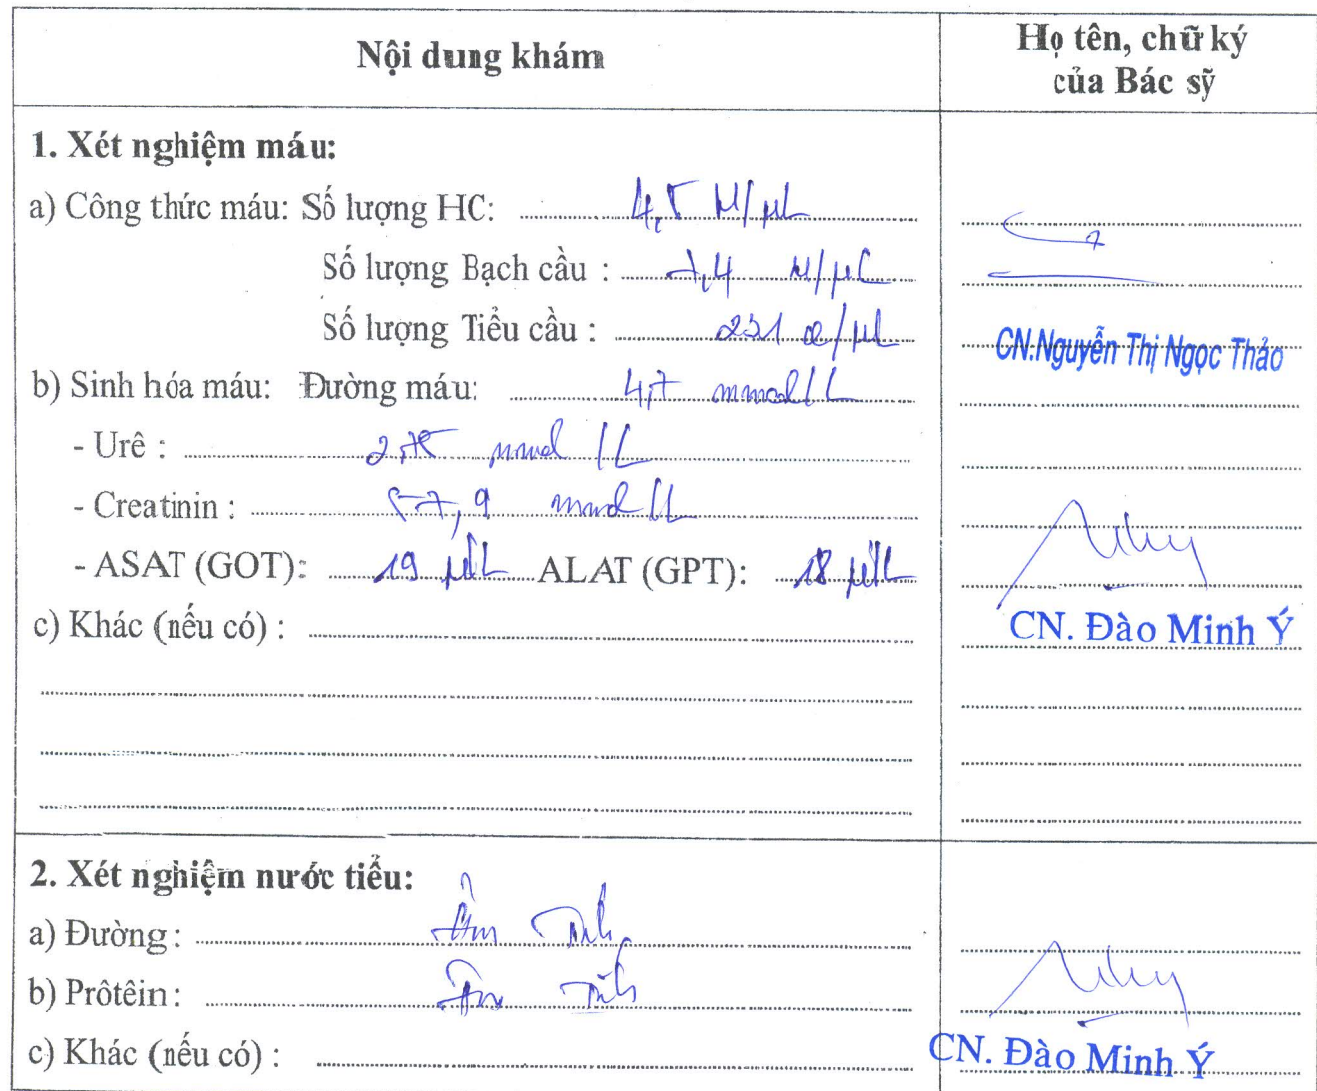 Nội dung khám
Họ tên, chữ ký
của Bác sỹ
1. Xét nghiệm máu:
a) Công thức máu: Số lượng HC: 4,5 M/µL
Số lượng Bạch cầu : 7,4 M/µL
Số lượng Tiểu cầu : /µL
CN.Nguyễn Thị Ngọc Thảo
b) Sinh hóa máu: Đường máu: 4,7 mmol/L
- Urê : mmol/L
- Creatinin : 57,9 mmol/L
- ASAT (GOT): 19 µ/L ALAT (GPT): 18 µ/L
c) Khác (nếu có) :
CN. Đào Minh Ý
2. Xét nghiệm nước tiểu:
a) Đường: Âm Tính
b) Prôtêin: Âm Tính
c) Khác (nếu có) :
CN. Đào Minh Ý